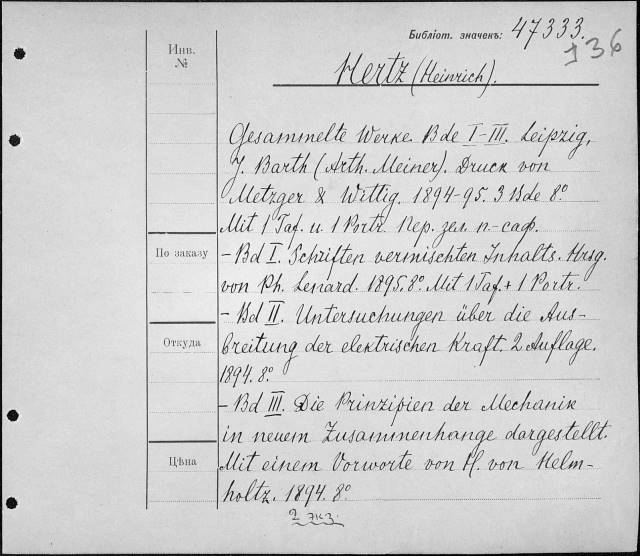 Библіот. значекъ: 47333.
136
Инв.
№
Hertz (Heinrich).
Gesammelte Werke. Bde I-III. Leipzig,
J. Barth (Arth. Meiner). Druck von
Metzger & Wittig. 1894-95. 3 Bde 8°
Mit 1 Taf. u. 1 Portr. Пер. зел. п-саф.
По заказу
- Bd I. Schriften vermischten Inhalts. Hrsg.
von Ph. Lenard. 1895. 8° Mit 1 Taf. + 1 Portr.
- Bd II. Untersuchungen über die Aus-
Откуда
breitung der elektrischen Kraft. 2 Auflage.
1894. 8°
- Bd III. Die Prinzipien der Mechanik
in neuem Zusammenhange dargestellt.
Цѣна
Mit einem Vorworte von H. von Helm-
holtz. 1894. 8°
2 экз.